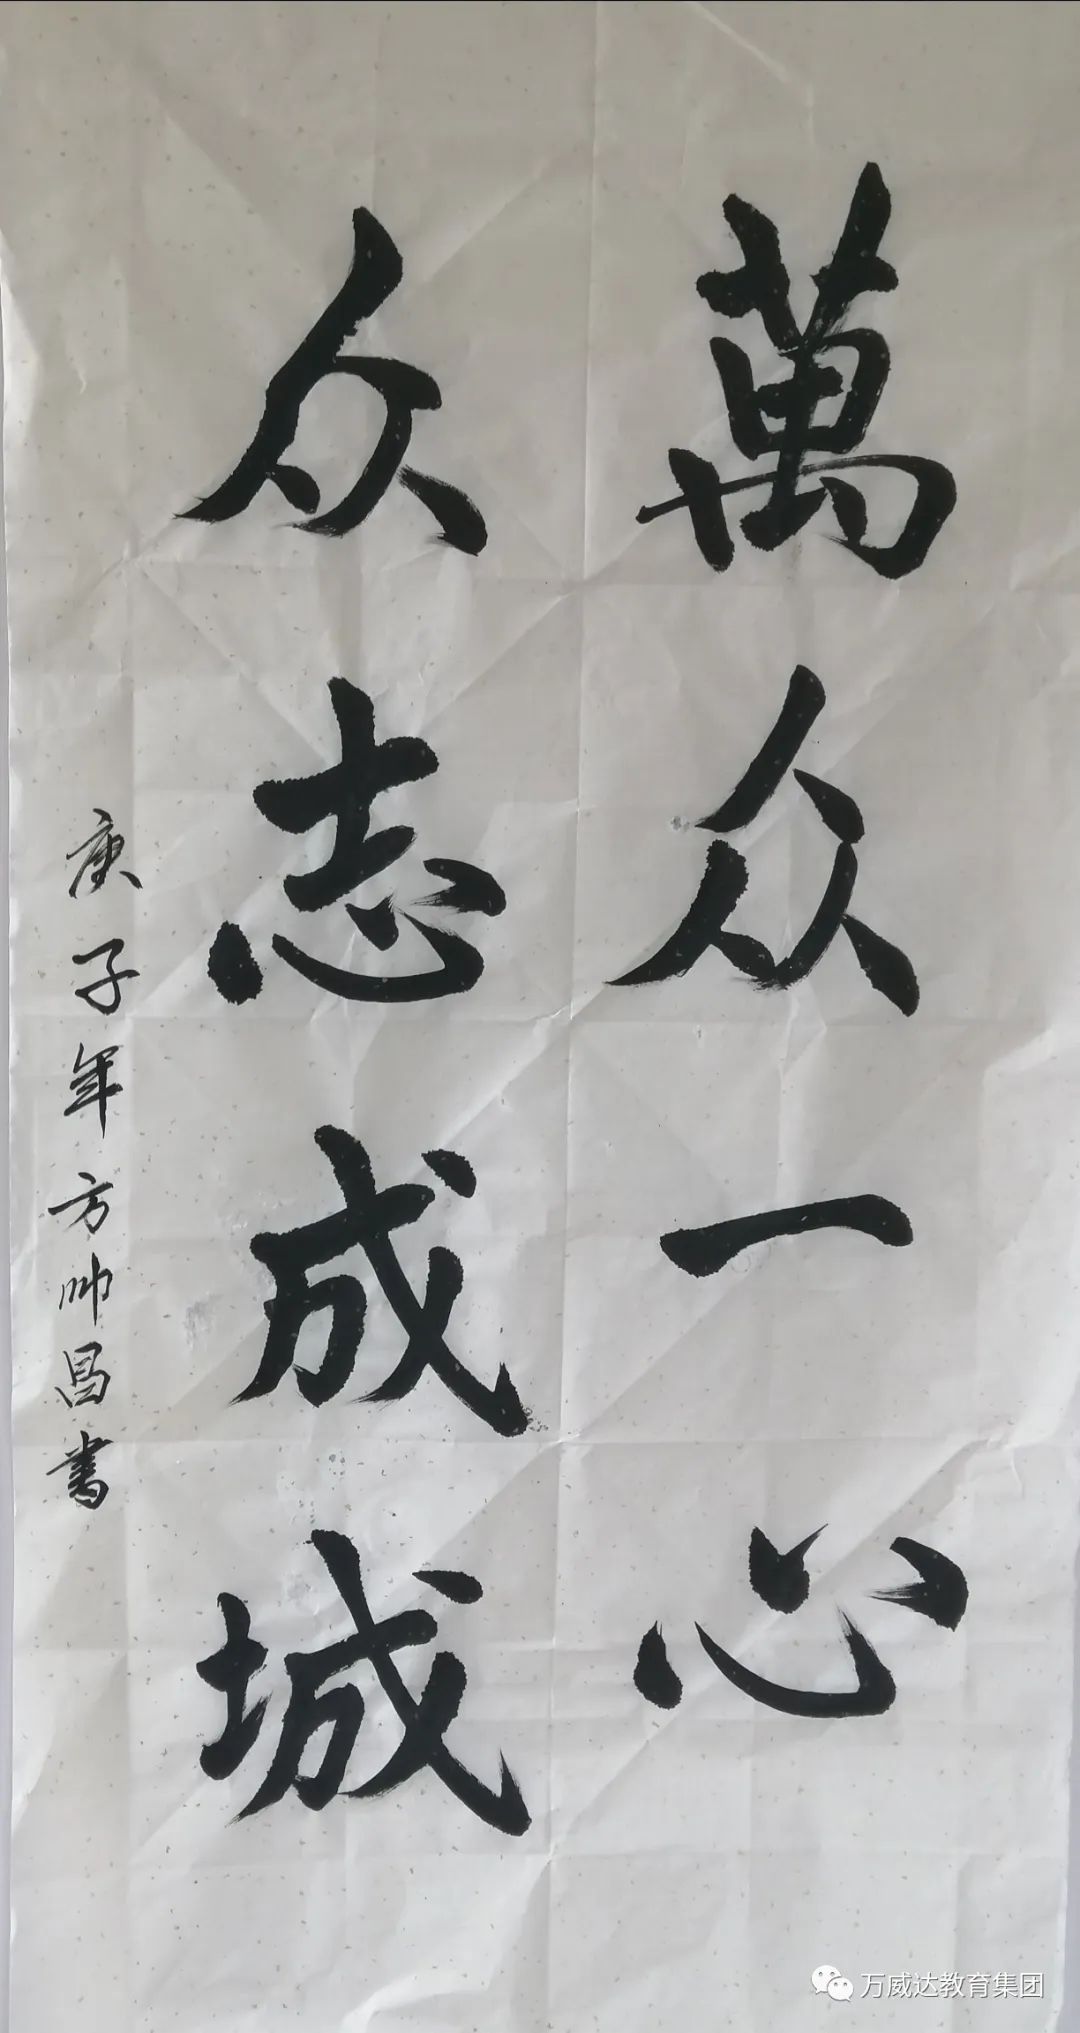 萬众一心
众志成城
庚子年方帅昌書
万威达教育集团